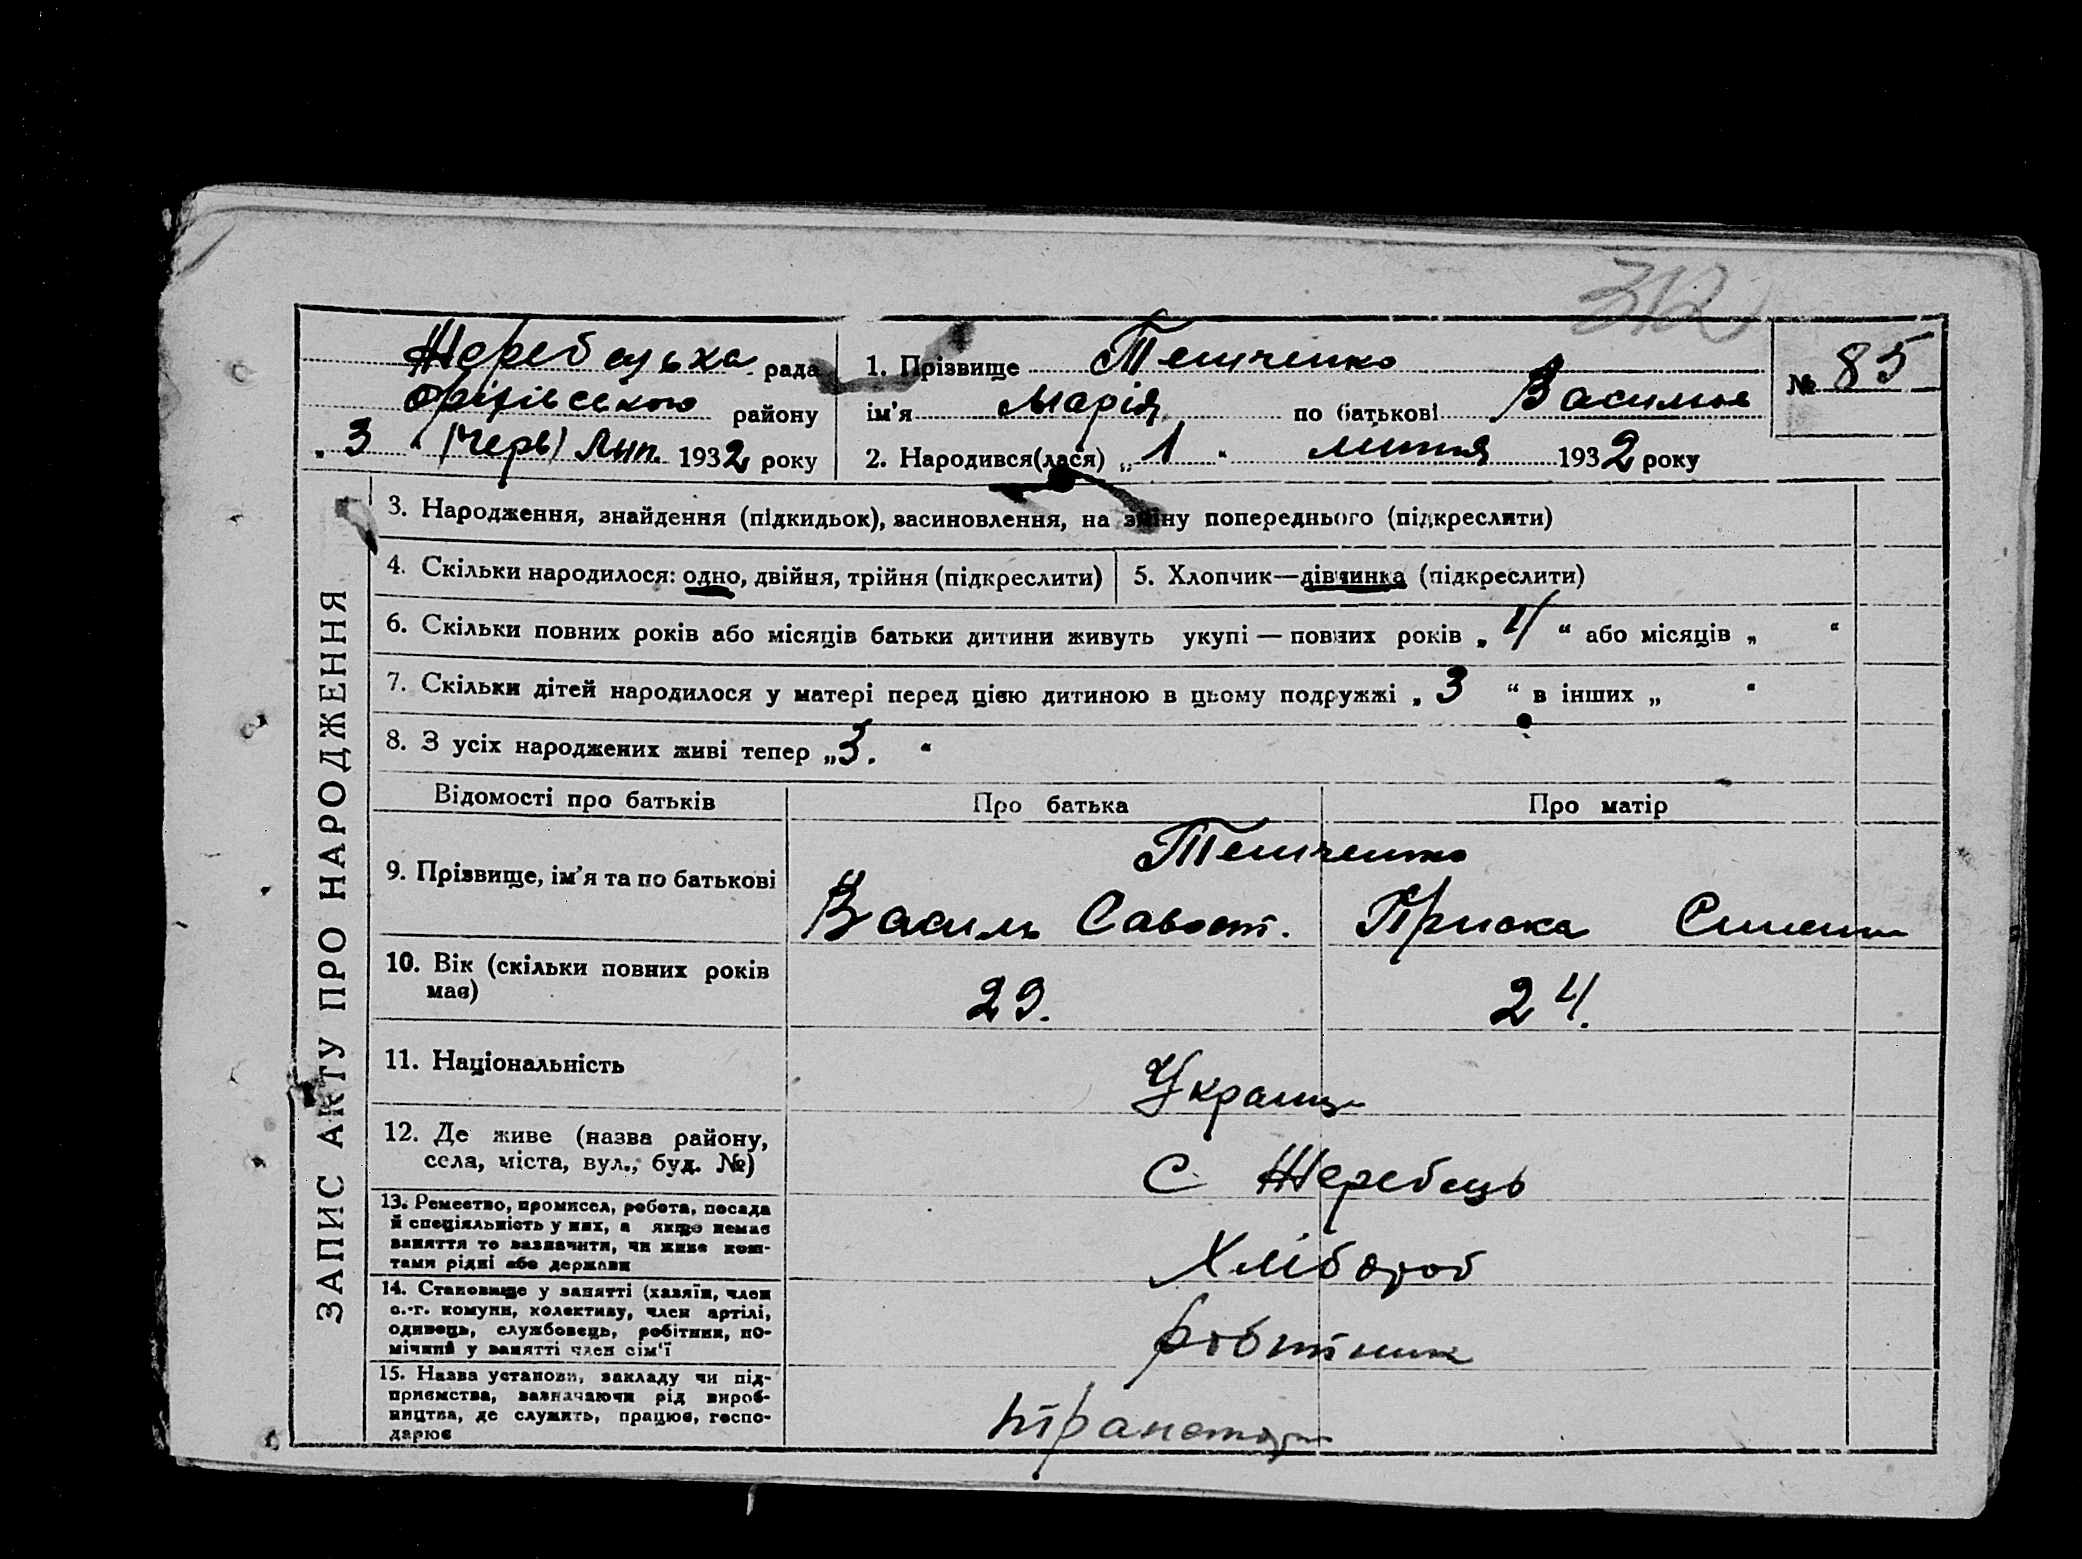 312
Жеребецька рада
Оріхівського району
„ 3 “ (черв) Лип. 1932 року
1. Прізвище Тешченко
ім’я Марія по батькові Василів
2. Народився(лася) „ 1 “ липня 1932 року
№ 85
ЗАПИС АКТУ ПРО НАРОДЖЕННЯ
3. Народження, знайдення (підкидьок), засиновлення, на зміну попереднього (підкреслити)
4. Скільки народилося: одно, двійня, трійня (підкреслити)
5. Хлопчик—дівчинка (підкреслити)
6. Скільки повних років або місяців батьки дитини живуть укупі — повних років „ 4 “ або місяців „ “
7. Скільки дітей народилося у матері перед цією дитиною в цьому подружжі „ 3 “ в інших „ “
8. З усіх народжених живі тепер „ 3. “
Відомості про батьків
Про батька
Про матір
9. Прізвище, ім’я та по батькові
Тешченко
Василь Савост.
Приска
10. Вік (скільки повних років має)
29.
24.
11. Національність
Украінц
12. Де живе (назва району,
села, міста, вул., буд. №)
с Жеребець
13. Ремество, промисел, робота, посада
й спеціяльність у них, а якщо немає
заняття то зазначити, чи живе кош-
тами рідні або держави
Хлібороб
14. Становище у занятті (хазяїн, член
с.-г. комуни, колективу, член артілі,
одинець, службовець, робітник, по-
мічний у занятті член сім’ї
робітник
15. Назва установи, закладу чи під-
приємства, зазначаючи рід вироб-
ництва, де служить, працює, госпо-
дарює